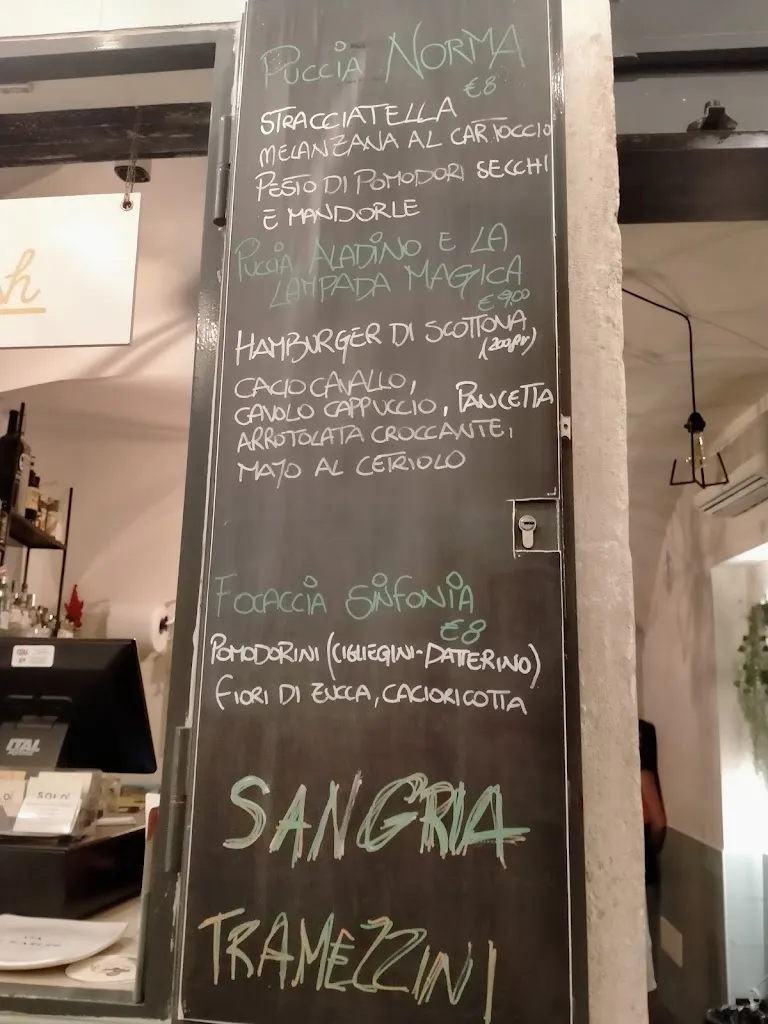 Puccia NORMA
€8
STRACCIATELLA
MELANZANA AL CARTOCCIO
PESTO DI POMODORI SECCHI
E MANDORLE
Puccia ALADINO E LA
LAMPADA MAGICA
€ 9,00
HAMBURGER DI SCOTTONA
(200gr)
CACIOCAVALLO,
CAVOLO CAPPUCCIO, PANCETTA
ARROTOLATA CROCCANTE,
MAYO AL CETRIOLO
FOCACCIA SINFONIA
€8
POMODORINI (CIGLIEGINI-DATTERINO)
FIORI DI ZUCCA, CACIORICOTTA
SANGRIA
TRAMEZZINI
h
ITAL
SOLO